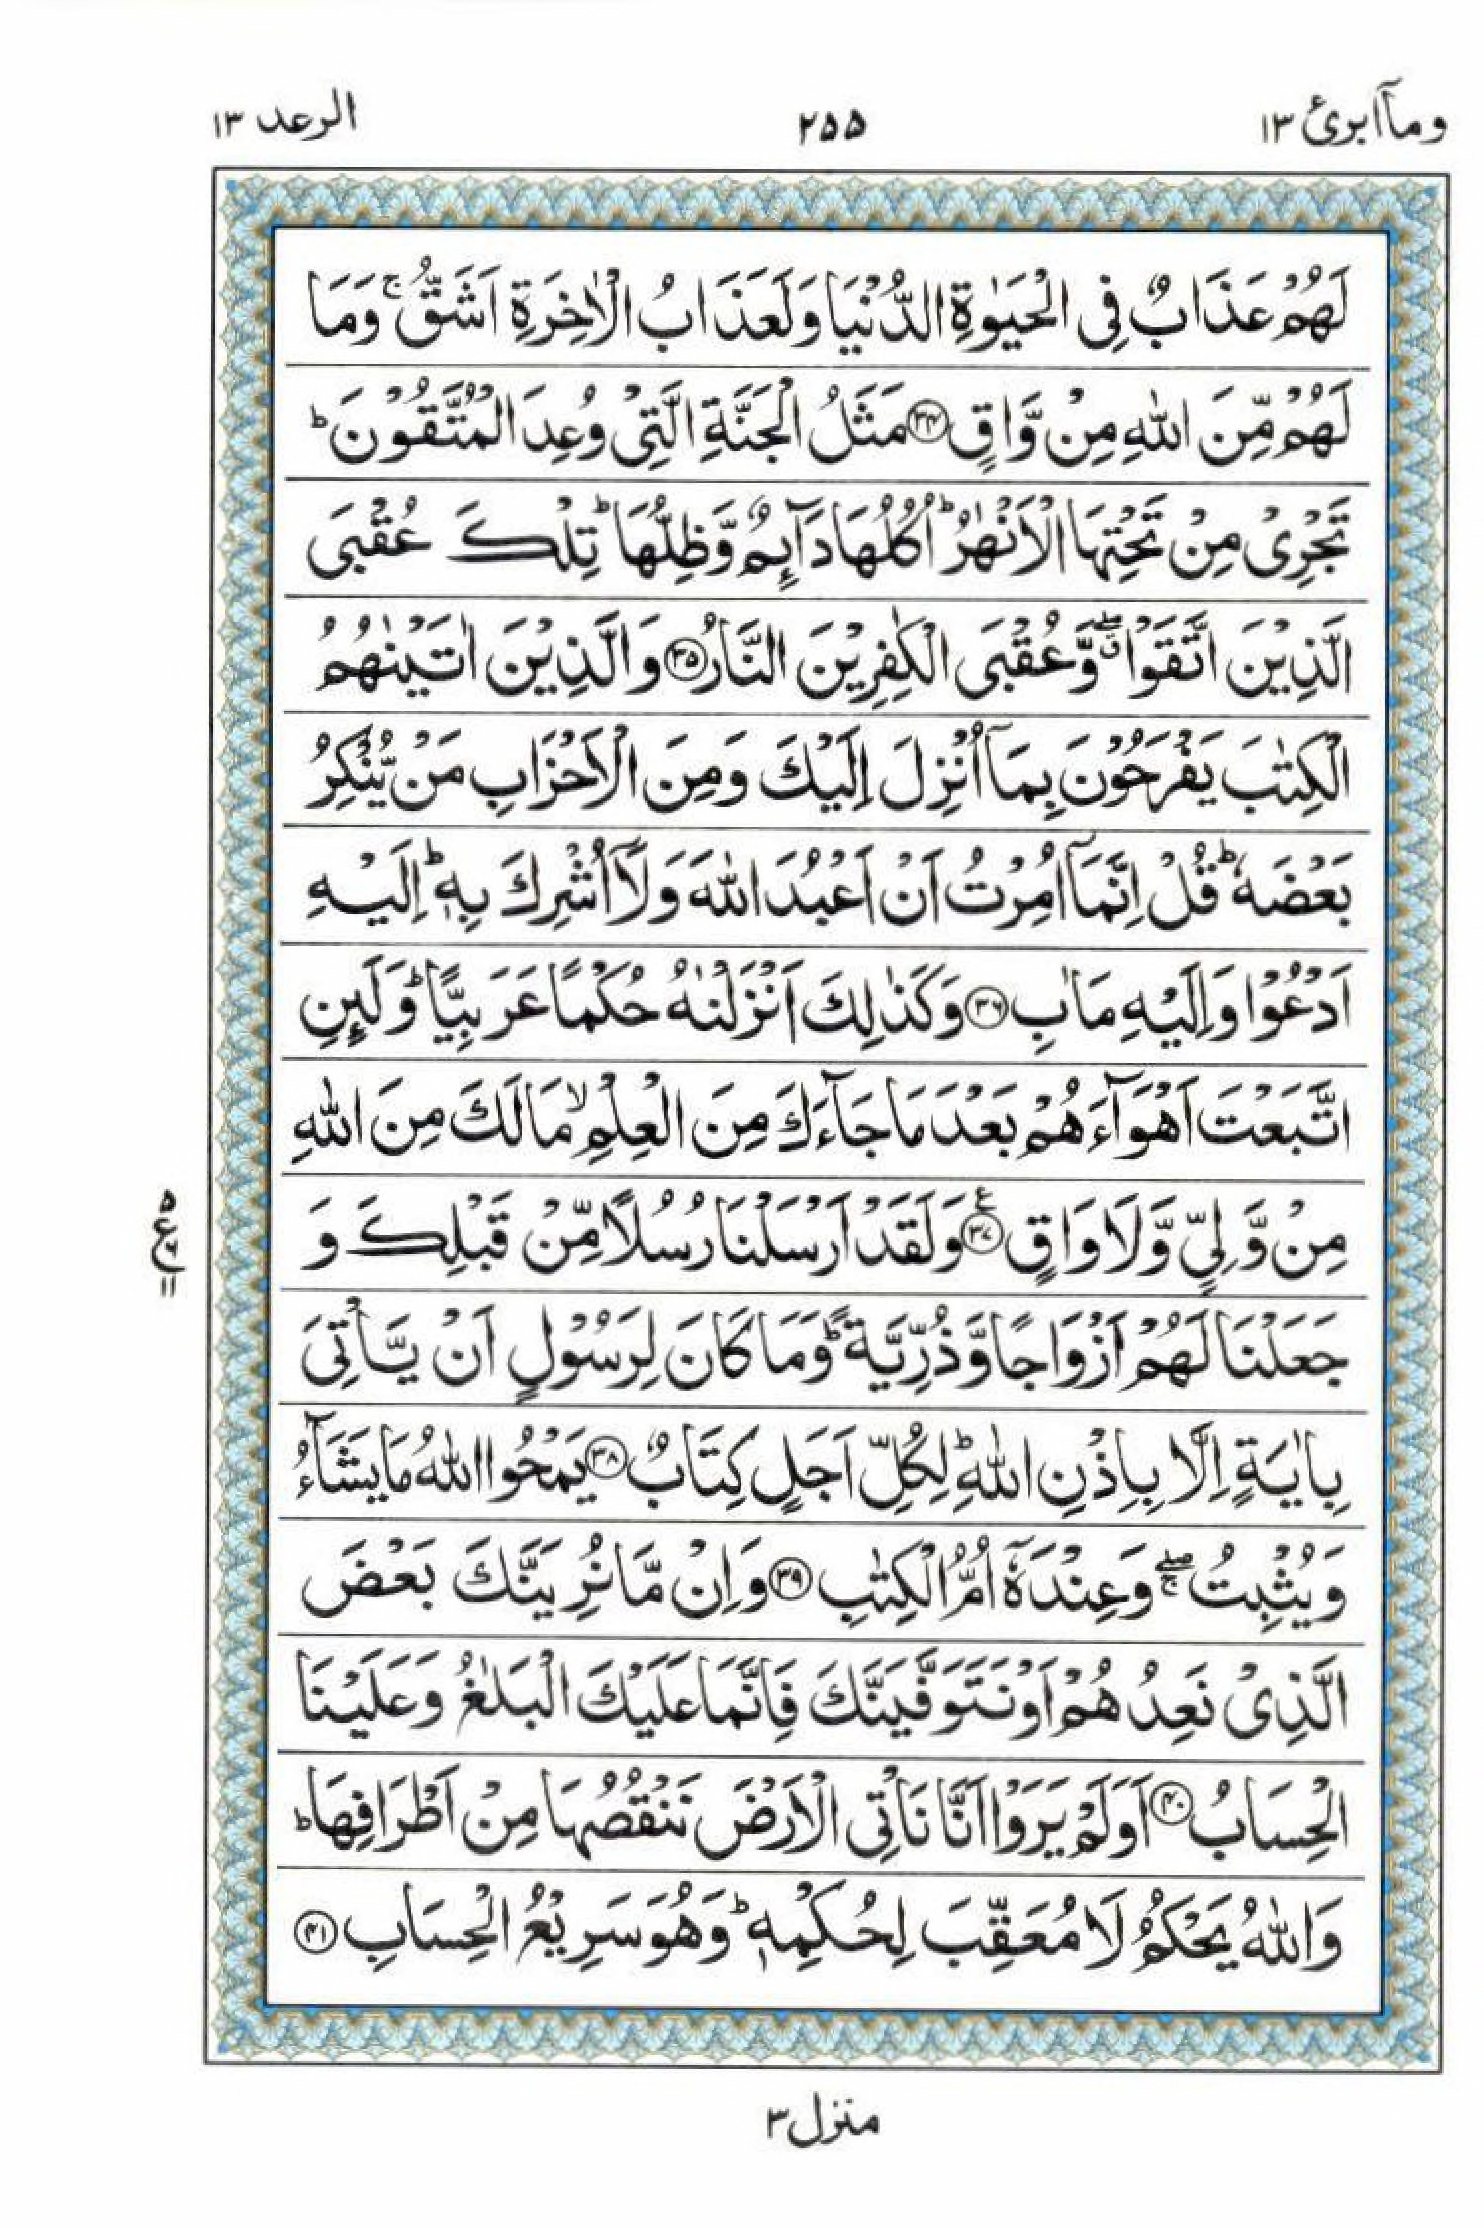 ومآابرئ ١٣
٢٥٥
الرعد ١٣
لَهُمْ عَذَابٌ فِی الْحَيٰوةِ الدُّنْيَا وَلَعَذَابُ الْاٰخِرَةِ اَشَقُّ ۚ وَمَا
لَهُمْ مِّنَ اللّٰهِ مِنْ وَّاقٍ ﴿۳۴﴾ مَثَلُ الْجَنَّةِ الَّتِیْ وُعِدَ الْمُتَّقُوْنَ ؕ
تَجْرِیْ مِنْ تَحْتِهَا الْاَنْهٰرُ ؕ اُكُلُهَا دَآىِٕمٌ وَّظِلُّهَا ؕ تِلْكَ عُقْبَی
الَّذِيْنَ اتَّقَوْا ۖۗ وَّعُقْبَی الْكٰفِرِيْنَ النَّارُ ﴿۳۵﴾ وَالَّذِيْنَ اٰتَيْنٰهُمُ
الْكِتٰبَ يَفْرَحُوْنَ بِمَآ اُنْزِلَ اِلَيْكَ وَمِنَ الْاَحْزَابِ مَنْ يُّنْكِرُ
بَعْضَهٗ ؕ قُلْ اِنَّمَآ اُمِرْتُ اَنْ اَعْبُدَ اللّٰهَ وَلَآ اُشْرِكَ بِهٖ ؕ اِلَيْهِ
اَدْعُوْا وَاِلَيْهِ مَاٰبِ ﴿۳۶﴾ وَكَذٰلِكَ اَنْزَلْنٰهُ حُكْمًا عَرَبِيًّا ؕ وَلَىِٕنِ
اتَّبَعْتَ اَهْوَآءَهُمْ بَعْدَ مَا جَآءَكَ مِنَ الْعِلْمِ ۙ مَا لَكَ مِنَ اللّٰهِ
مِنْ وَّلِیٍّ وَّلَا وَاقٍ ﴿۳۷﴾ ع وَلَقَدْ اَرْسَلْنَا رُسُلًا مِّنْ قَبْلِكَ وَ
جَعَلْنَا لَهُمْ اَزْوَاجًا وَّذُرِّيَّةً ؕ وَمَا كَانَ لِرَسُوْلٍ اَنْ يَّاْتِیَ
بِاٰيَةٍ اِلَّا بِاِذْنِ اللّٰهِ ؕ لِكُلِّ اَجَلٍ كِتَابٌ ﴿۳۸﴾ يَمْحُوا اللّٰهُ مَا يَشَآءُ
وَيُثْبِتُ ۖۚ وَعِنْدَهٗۤ اُمُّ الْكِتٰبِ ﴿۳۹﴾ وَاِنْ مَّا نُرِيَنَّكَ بَعْضَ
الَّذِیْ نَعِدُهُمْ اَوْ نَتَوَفَّيَنَّكَ فَاِنَّمَا عَلَيْكَ الْبَلٰغُ وَعَلَيْنَا
الْحِسَابُ ﴿۴۰﴾ اَوَلَمْ يَرَوْا اَنَّا نَاْتِی الْاَرْضَ نَنْقُصُهَا مِنْ اَطْرَافِهَا ؕ
وَاللّٰهُ يَحْكُمُ لَا مُعَقِّبَ لِحُكْمِهٖ ؕ وَهُوَ سَرِيْعُ الْحِسَابِ ﴿۴۱﴾
۵
ع
۱۱
منزل ٣